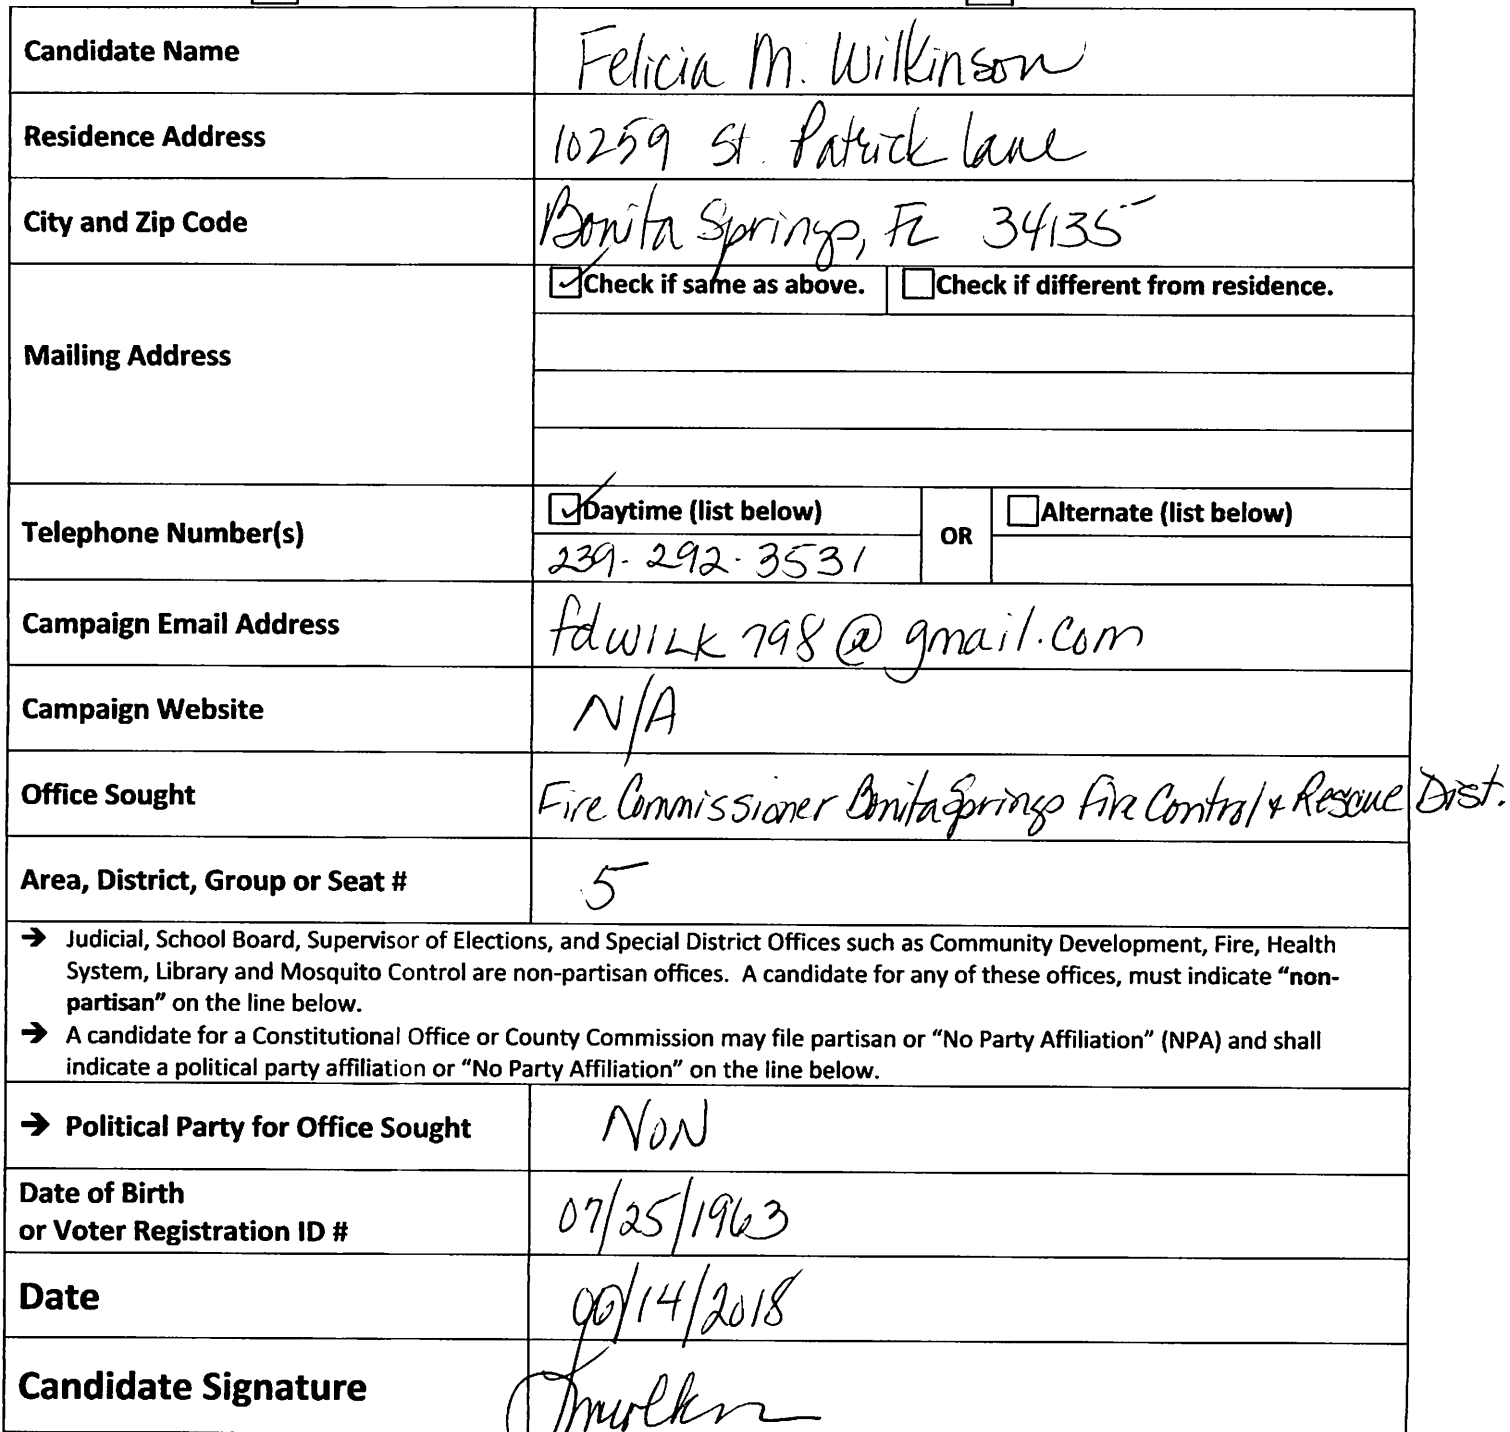 Candidate Name Felicia M. Wilkinson
Residence Address 10259 St. Patrick Lane
City and Zip Code Bonita Springs, FL 34135
Check if same as above. Check if different from residence.
Mailing Address
Daytime (list below) OR Alternate (list below)
Telephone Number(s)
239-292-3531
Campaign Email Address fdwilk798@gmail.com
Campaign Website N/A
Office Sought Fire Commissioner Bonita Springs Fire Control & Rescue Dist.
Area, District, Group or Seat # 5
→ Judicial, School Board, Supervisor of Elections, and Special District Offices such as Community Development, Fire, Health
System, Library and Mosquito Control are non-partisan offices. A candidate for any of these offices, must indicate “non-
partisan” on the line below.
→ A candidate for a Constitutional Office or County Commission may file partisan or “No Party Affiliation” (NPA) and shall
indicate a political party affiliation or “No Party Affiliation” on the line below.
→ Political Party for Office Sought NON
Date of Birth
or Voter Registration ID # 07/25/1963
Date /14/2018
Candidate Signature